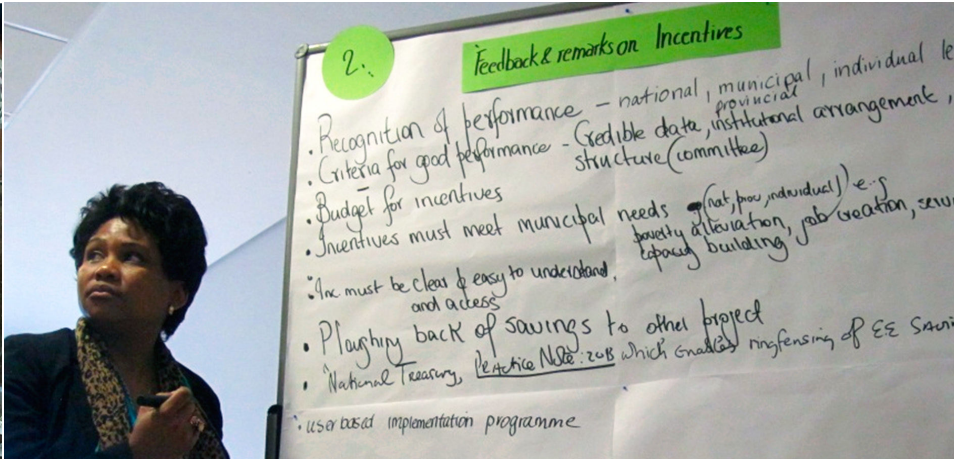 2.
Feedback & remarks on Incentives
• Recognition of performance – national, municipal, individual le
provincial
• Criteria for good performance – Credible data, institutional arrangement,
structure (committee)
• Budget for incentives
• Incentives must meet municipal needs (nat, prov, individual) e.g
poverty alleviation, job creation,
capacity building
• Inc must be clear & easy to understand,
and access
• Ploughing back of savings to other project
• National Treasury, Practice Note: which enables ringfensing of EE
• user based implementation programme